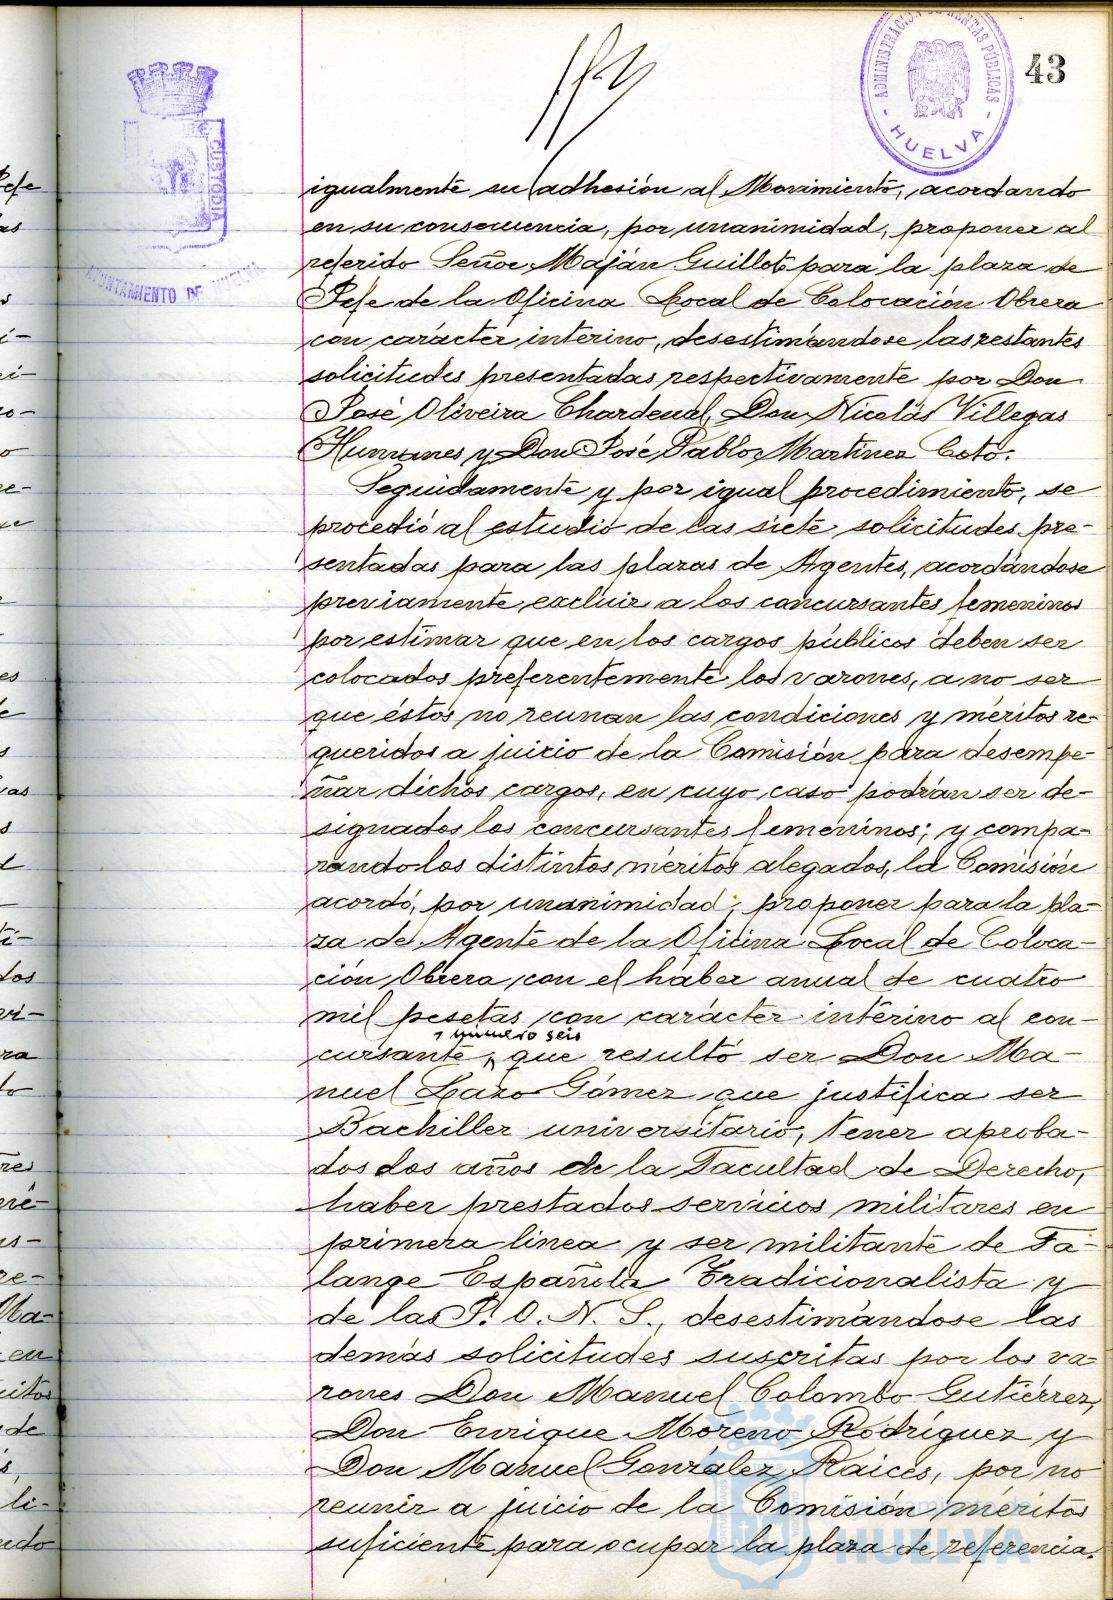 43
ADMINISTRACIÓN DE RENTAS PÚBLICAS
- HUELVA -
CUSTODIA
AYUNTAMIENTO DE HUELVA
igualmente su adhesión al Movimiento, acordando
en su consecuencia, por unanimidad, proponer al
referido Señor Maján Guillot para la plaza de
Jefe de la Oficina Local de Colocación Obrera
con carácter interino, desestimándose las restantes
solicitudes presentadas respectivamente por Don
José Oliveira Chardenal, Don Nicolás Villegas
Humanes y Don José Pablo Martínez Coto.
Seguidamente y por igual procedimiento, se
procedió al estudio de las siete solicitudes pre-
sentadas para las plazas de Agentes, acordándose
previamente excluir a los concursantes femeninos
por estimar que en los cargos públicos deben ser
colocados preferentemente los varones, a no ser
que éstos no reunan las condiciones y méritos re-
queridos a juicio de la Comisión para desempe-
ñar dichos cargos, en cuyo caso podrán ser de-
signados los concursantes femeninos; y compa-
rando los distintos méritos alegados, la Comisión
acordó, por unanimidad, proponer para la pla-
za de Agente de la Oficina Local de Coloca-
ción Obrera con el haber anual de cuatro
mil pesetas con carácter interino al con-
número seis
cursante, que resultó ser Don Ma-
nuel Lazo Gómez que justifica ser
Bachiller universitario, tener aproba-
dos dos años de la Facultad de Derecho,
haber prestados servicios militares en
primera linea y ser militante de Fa-
lange Española Tradicionalista y
de las J. O. N. S., desestimándose las
demás solicitudes suscritas por los va-
rones Don Manuel Colombo Gutiérrez,
Don Enrique Moreno Rodríguez y
Don Manuel González Raices, por no
reunir a juicio de la Comisión méritos
suficiente para ocupar la plaza de referencia.
HUELVA